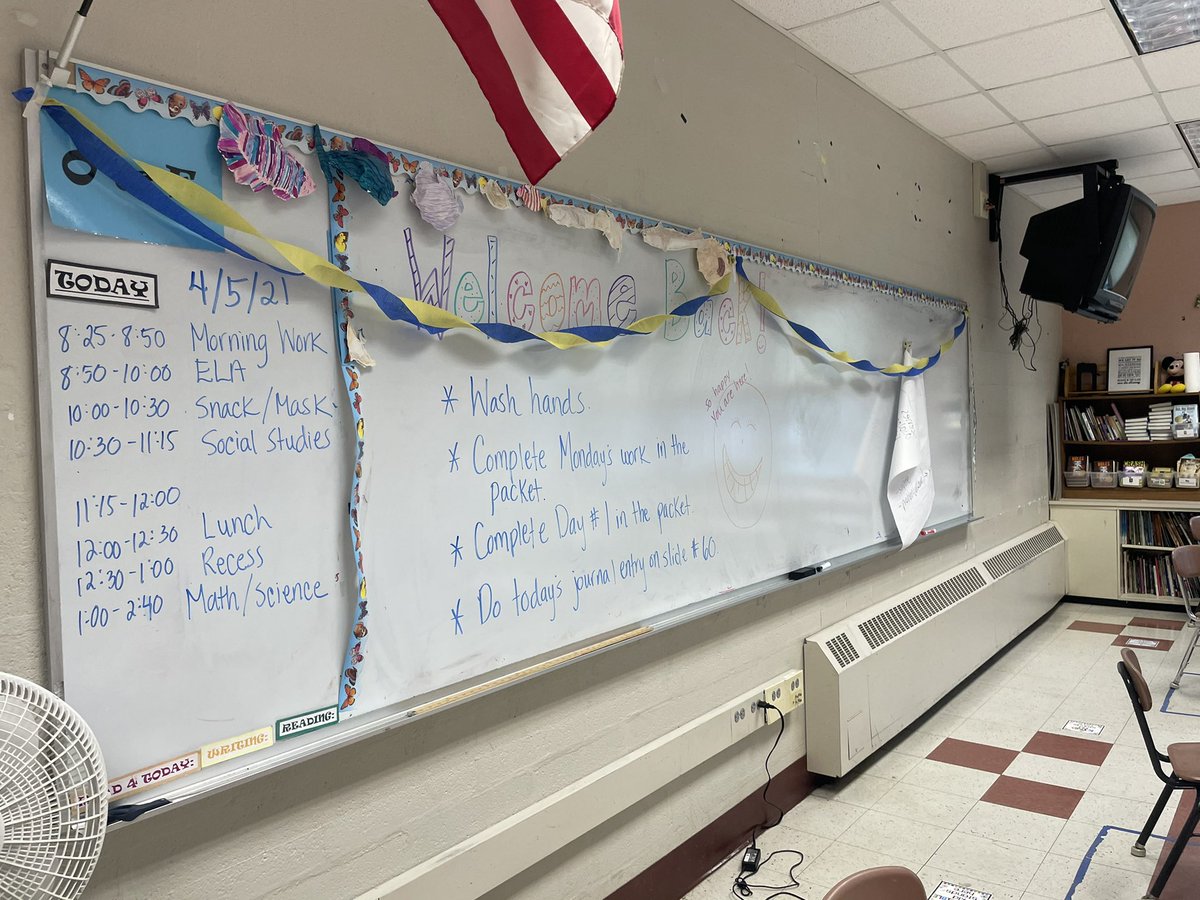 TODAY
4/5/21
8:25-8:50 Morning Work
8:50-10:00 ELA
10:00-10:30 Snack/Mask
10:30-11:15 Social Studies
11:15-12:00
12:00-12:30 Lunch
12:30-1:00 Recess
1:00-2:40 Math/Science
4 TODAY:
WRITING:
READING:
Welcome Back!
* Wash hands.
* Complete Monday's work in the
packet.
* Complete Day #1 in the packet.
* Do today's journal entry on slide #60.
so happy
you are here!